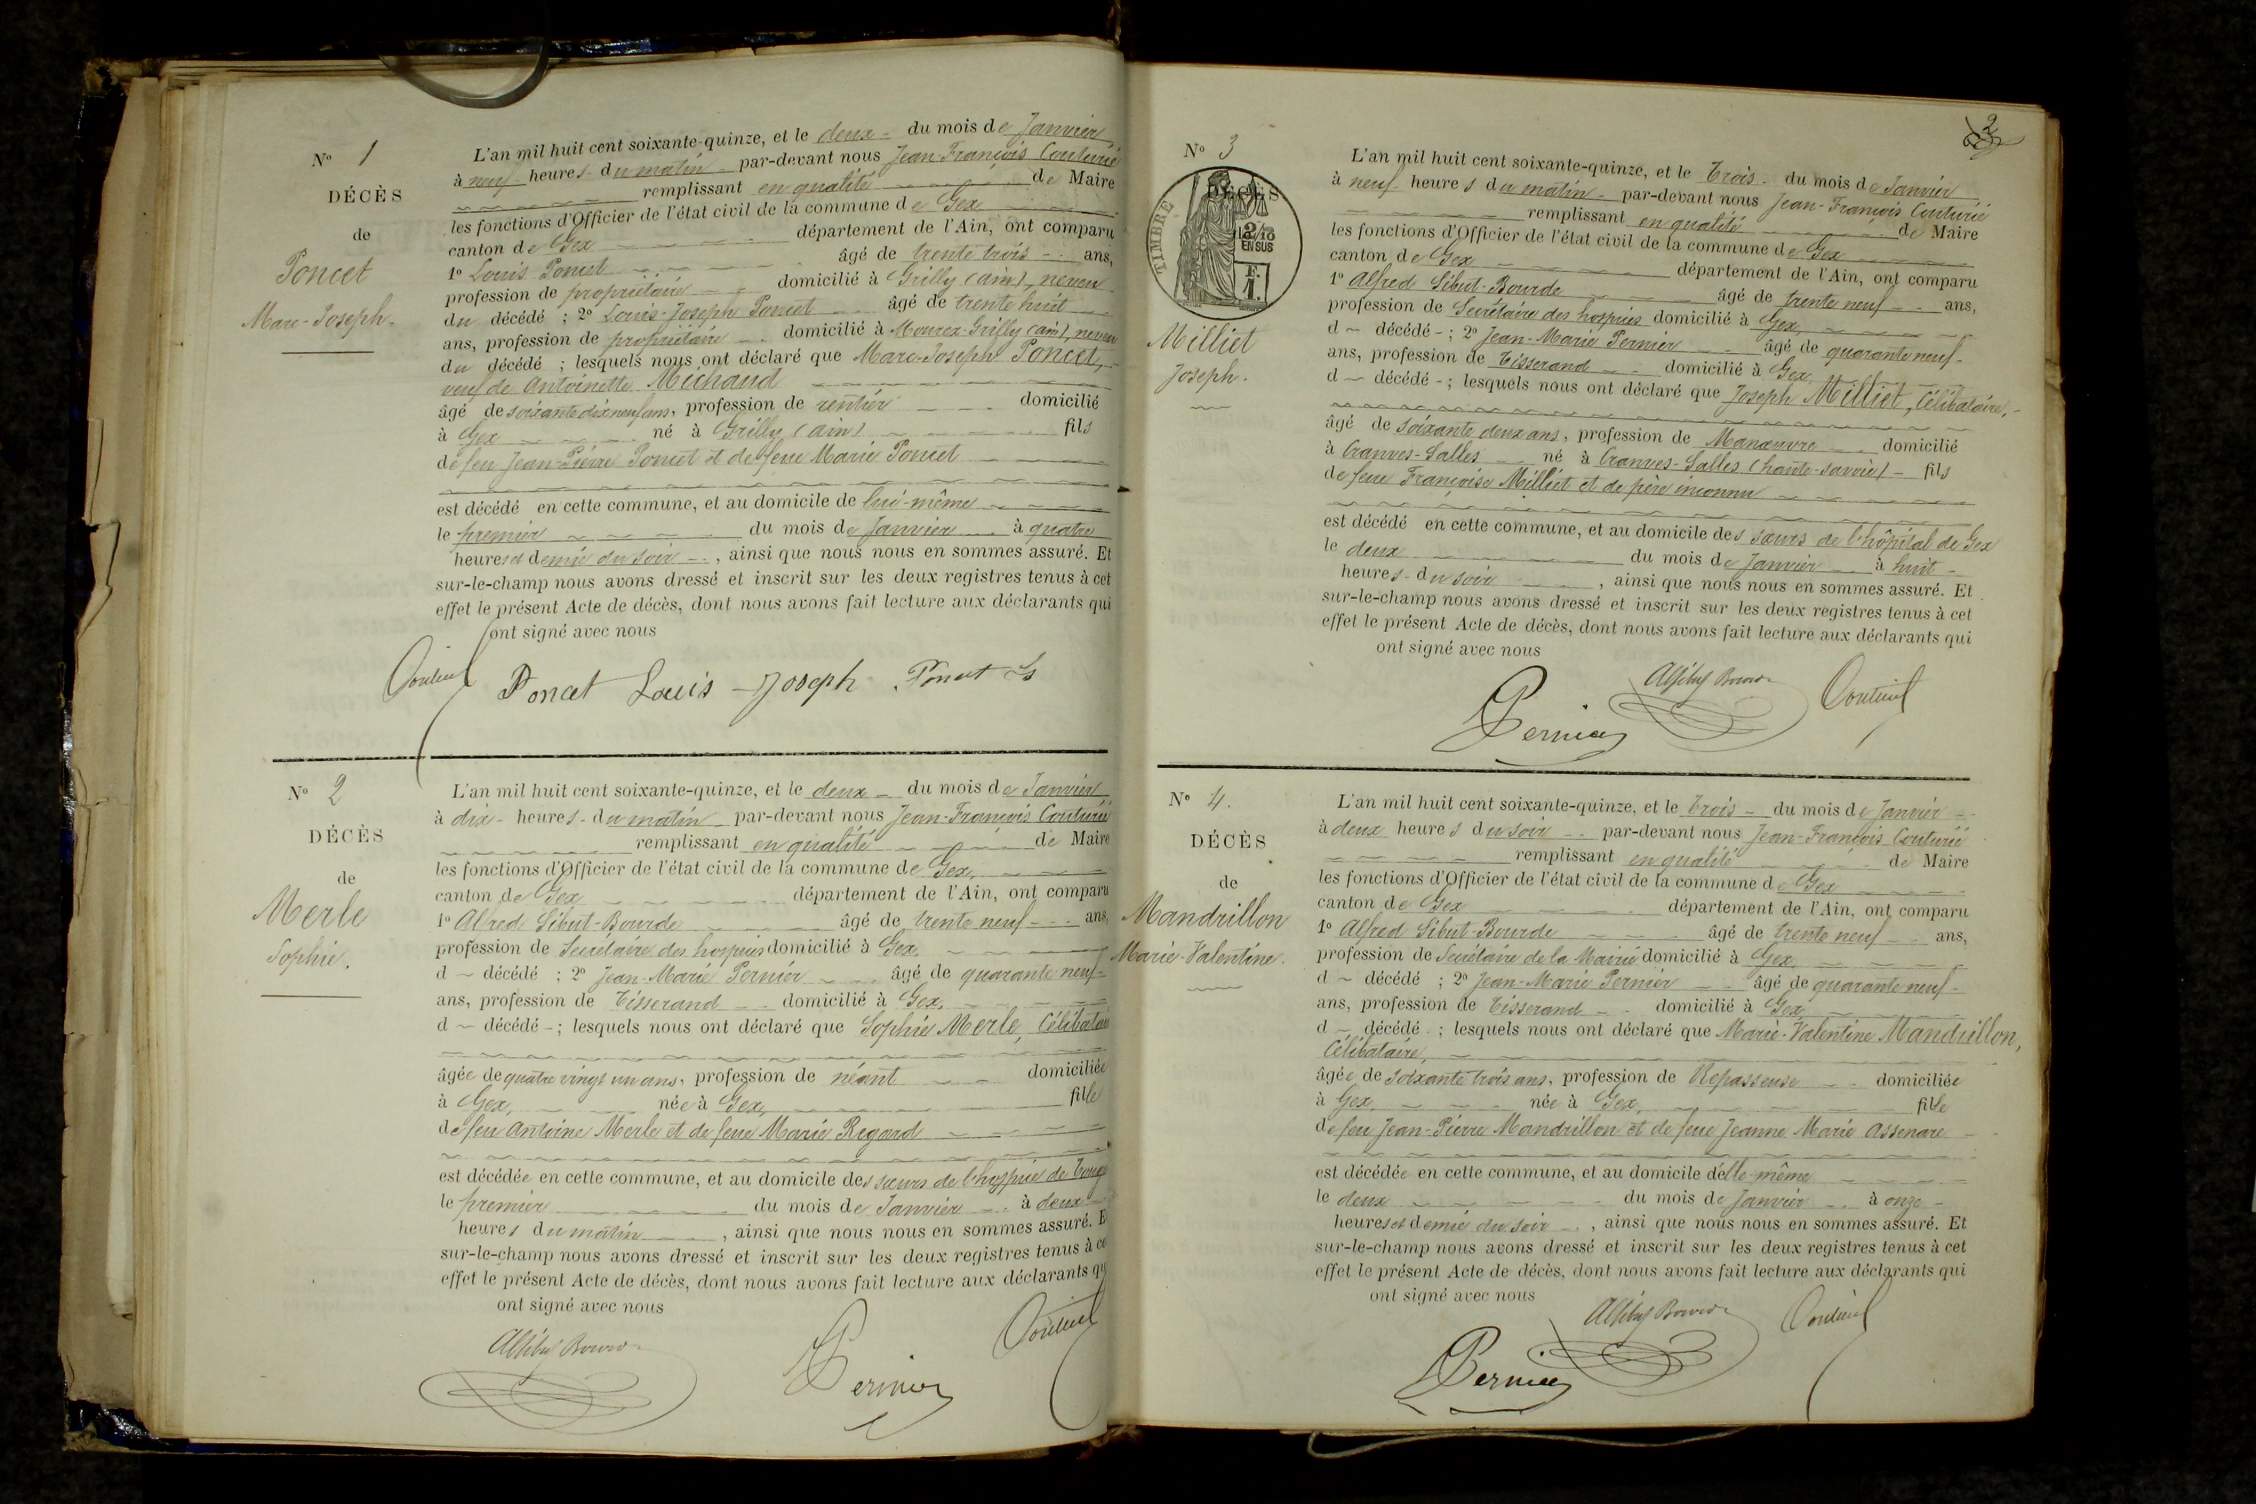 N° 1
DÉCÈS
de
Poncet
Marc-Joseph
L'an mil huit cent soixante-quinze, et le deux du mois de Janvier
à neuf heures du matin par-devant nous Jean-François Couturié
remplissant en qualité de Maire
les fonctions d'Officier de l'état civil de la commune de Gex
canton de Gex département de l'Ain, ont comparu
1° Louis Poncet âgé de trente trois ans,
profession de propriétaire domicilié à Grilly (ain), neveu
du décédé ; 2° Louis-Joseph Poncet âgé de trente huit
ans, profession de propriétaire domicilié à Mourex-Grilly (ain), neveu
du décédé ; lesquels nous ont déclaré que Marc-Joseph Poncet,
veuf de Antoinette Michaud
âgé de soixante dix neuf ans, profession de rentier domicilié
à Gex né à Grilly (ain) fils
de feu Jean-Pierre Poncet et de feue Marie Poncet
est décédé en cette commune, et au domicile de lui-même
le premier du mois de Janvier à quatre
heures et demie du soir, ainsi que nous nous en sommes assuré. Et
sur-le-champ nous avons dressé et inscrit sur les deux registres tenus à cet
effet le présent Acte de décès, dont nous avons fait lecture aux déclarants qui
ont signé avec nous
Poncet Louis-Joseph Poncet Ls
N° 2
DÉCÈS
de
Merle
Sophie.
L'an mil huit cent soixante-quinze, et le deux du mois de Janvier
à dix heures du matin par-devant nous Jean-François Couturié
remplissant en qualité de Maire
les fonctions d'Officier de l'état civil de la commune de Gex,
canton de Gex département de l'Ain, ont comparu
1° Alfred Sibut-Bourde âgé de trente neuf ans,
profession de Secrétaire des hospices domicilié à Gex,
d décédé ; 2° Jean-Marie Pernier âgé de quarante neuf
ans, profession de Tisserand domicilié à Gex,
d décédé ; lesquels nous ont déclaré que Sophie Merle, Célibataire
âgée de quatre vingt un ans, profession de néant domiciliée
à Gex, née à Gex, fille
de feu Antoine Merle et de feue Marie Regard
est décédée en cette commune, et au domicile des sœurs de l'hospice de
le premier du mois de Janvier à deux
heures du matin, ainsi que nous nous en sommes assuré. E
sur-le-champ nous avons dressé et inscrit sur les deux registres tenus à ce
effet le présent Acte de décès, dont nous avons fait lecture aux déclarants qu
ont signé avec nous
Pernier
2
N° 3
DÉCÈS
TIMBRE
2/10
EN SUS
Milliet
Joseph.
L'an mil huit cent soixante-quinze, et le Trois du mois de Janvier
à neuf heures du matin par-devant nous Jean-François Couturié
remplissant en qualité de Maire
les fonctions d'Officier de l'état civil de la commune de Gex
canton de Gex département de l'Ain, ont comparu
1° Alfred Sibut-Bourde âgé de trente neuf ans,
profession de Secrétaire des hospices domicilié à Gex,
d décédé ; 2° Jean-Marie Pernier âgé de quarante neuf
ans, profession de Tisserand domicilié à Gex
d décédé ; lesquels nous ont déclaré que Joseph Milliet, Célibataire,
âgé de soixante deux ans, profession de Manœuvre domicilié
à Cranves-Salles né à Cranves-Salles (haute-savoie) fils
de feue Françoise Milliet et de père inconnu
est décédé en cette commune, et au domicile des sœurs de l'hôpital de Gex
le deux du mois de Janvier à huit
heures du soir, ainsi que nous nous en sommes assuré. Et
sur-le-champ nous avons dressé et inscrit sur les deux registres tenus à cet
effet le présent Acte de décès, dont nous avons fait lecture aux déclarants qui
ont signé avec nous
Pernier
N° 4.
DÉCÈS
de
Mandrillon
Marie-Valentine.
L'an mil huit cent soixante-quinze, et le Trois du mois de Janvier
à deux heures du soir par-devant nous Jean-François Couturié
remplissant en qualité de Maire
les fonctions d'Officier de l'état civil de la commune de Gex
canton de Gex département de l'Ain, ont comparu
1° Alfred Sibut-Bourde âgé de trente neuf ans,
profession de Secrétaire de la Mairie domicilié à Gex,
d décédé ; 2° Jean-Marie Pernier âgé de quarante neuf
ans, profession de Tisserand domicilié à Gex
d décédé ; lesquels nous ont déclaré que Marie-Valentine Mandrillon,
Célibataire,
âgée de soixante trois ans, profession de Repasseuse domiciliée
à Gex, née à Gex, fille
de feu Jean-Pierre Mandrillon et de feue Jeanne Marie Assenare
est décédée en cette commune, et au domicile d'elle-même
le deux du mois de Janvier à onze
heures et demie du soir, ainsi que nous nous en sommes assuré. Et
sur-le-champ nous avons dressé et inscrit sur les deux registres tenus à cet
effet le présent Acte de décès, dont nous avons fait lecture aux déclarants qui
ont signé avec nous
Pernier